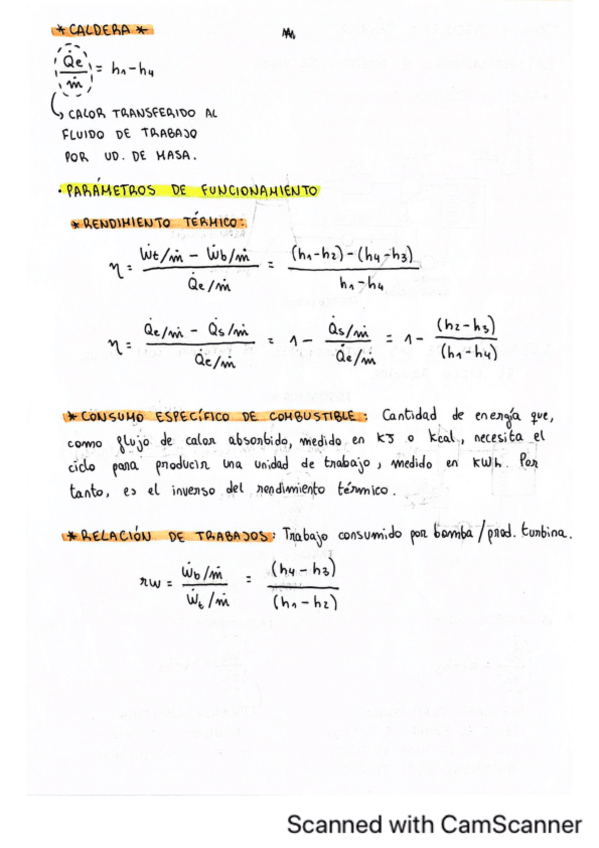 * CALDERA *
Q̇e/ṁ = h1-h4
CALOR TRANSFERIDO AL
FLUIDO DE TRABAJO
POR UD. DE MASA.
· PARÁMETROS DE FUNCIONAMIENTO
* RENDIMIENTO TÉRMICO:
η = (Ẇt/ṁ - Ẇb/ṁ) / (Q̇e/ṁ) = ((h1-h2)-(h4-h3)) / (h1-h4)
η = (Q̇e/ṁ - Q̇s/ṁ) / (Q̇e/ṁ) = 1 - (Q̇s/ṁ) / (Q̇e/ṁ) = 1 - (h2-h3) / (h1-h4)
* CONSUMO ESPECÍFICO DE COMBUSTIBLE: Cantidad de energía que,
como flujo de calor absorbido, medido en KJ o Kcal, necesita el
ciclo para producir una unidad de trabajo, medido en KWh. Por
tanto, es el inverso del rendimiento térmico.
* RELACIÓN DE TRABAJOS: Trabajo consumido por bomba/prod. turbina.
rw = (Ẇb/ṁ) / (Ẇt/ṁ) = (h4-h3) / (h1-h2)
Scanned with CamScanner